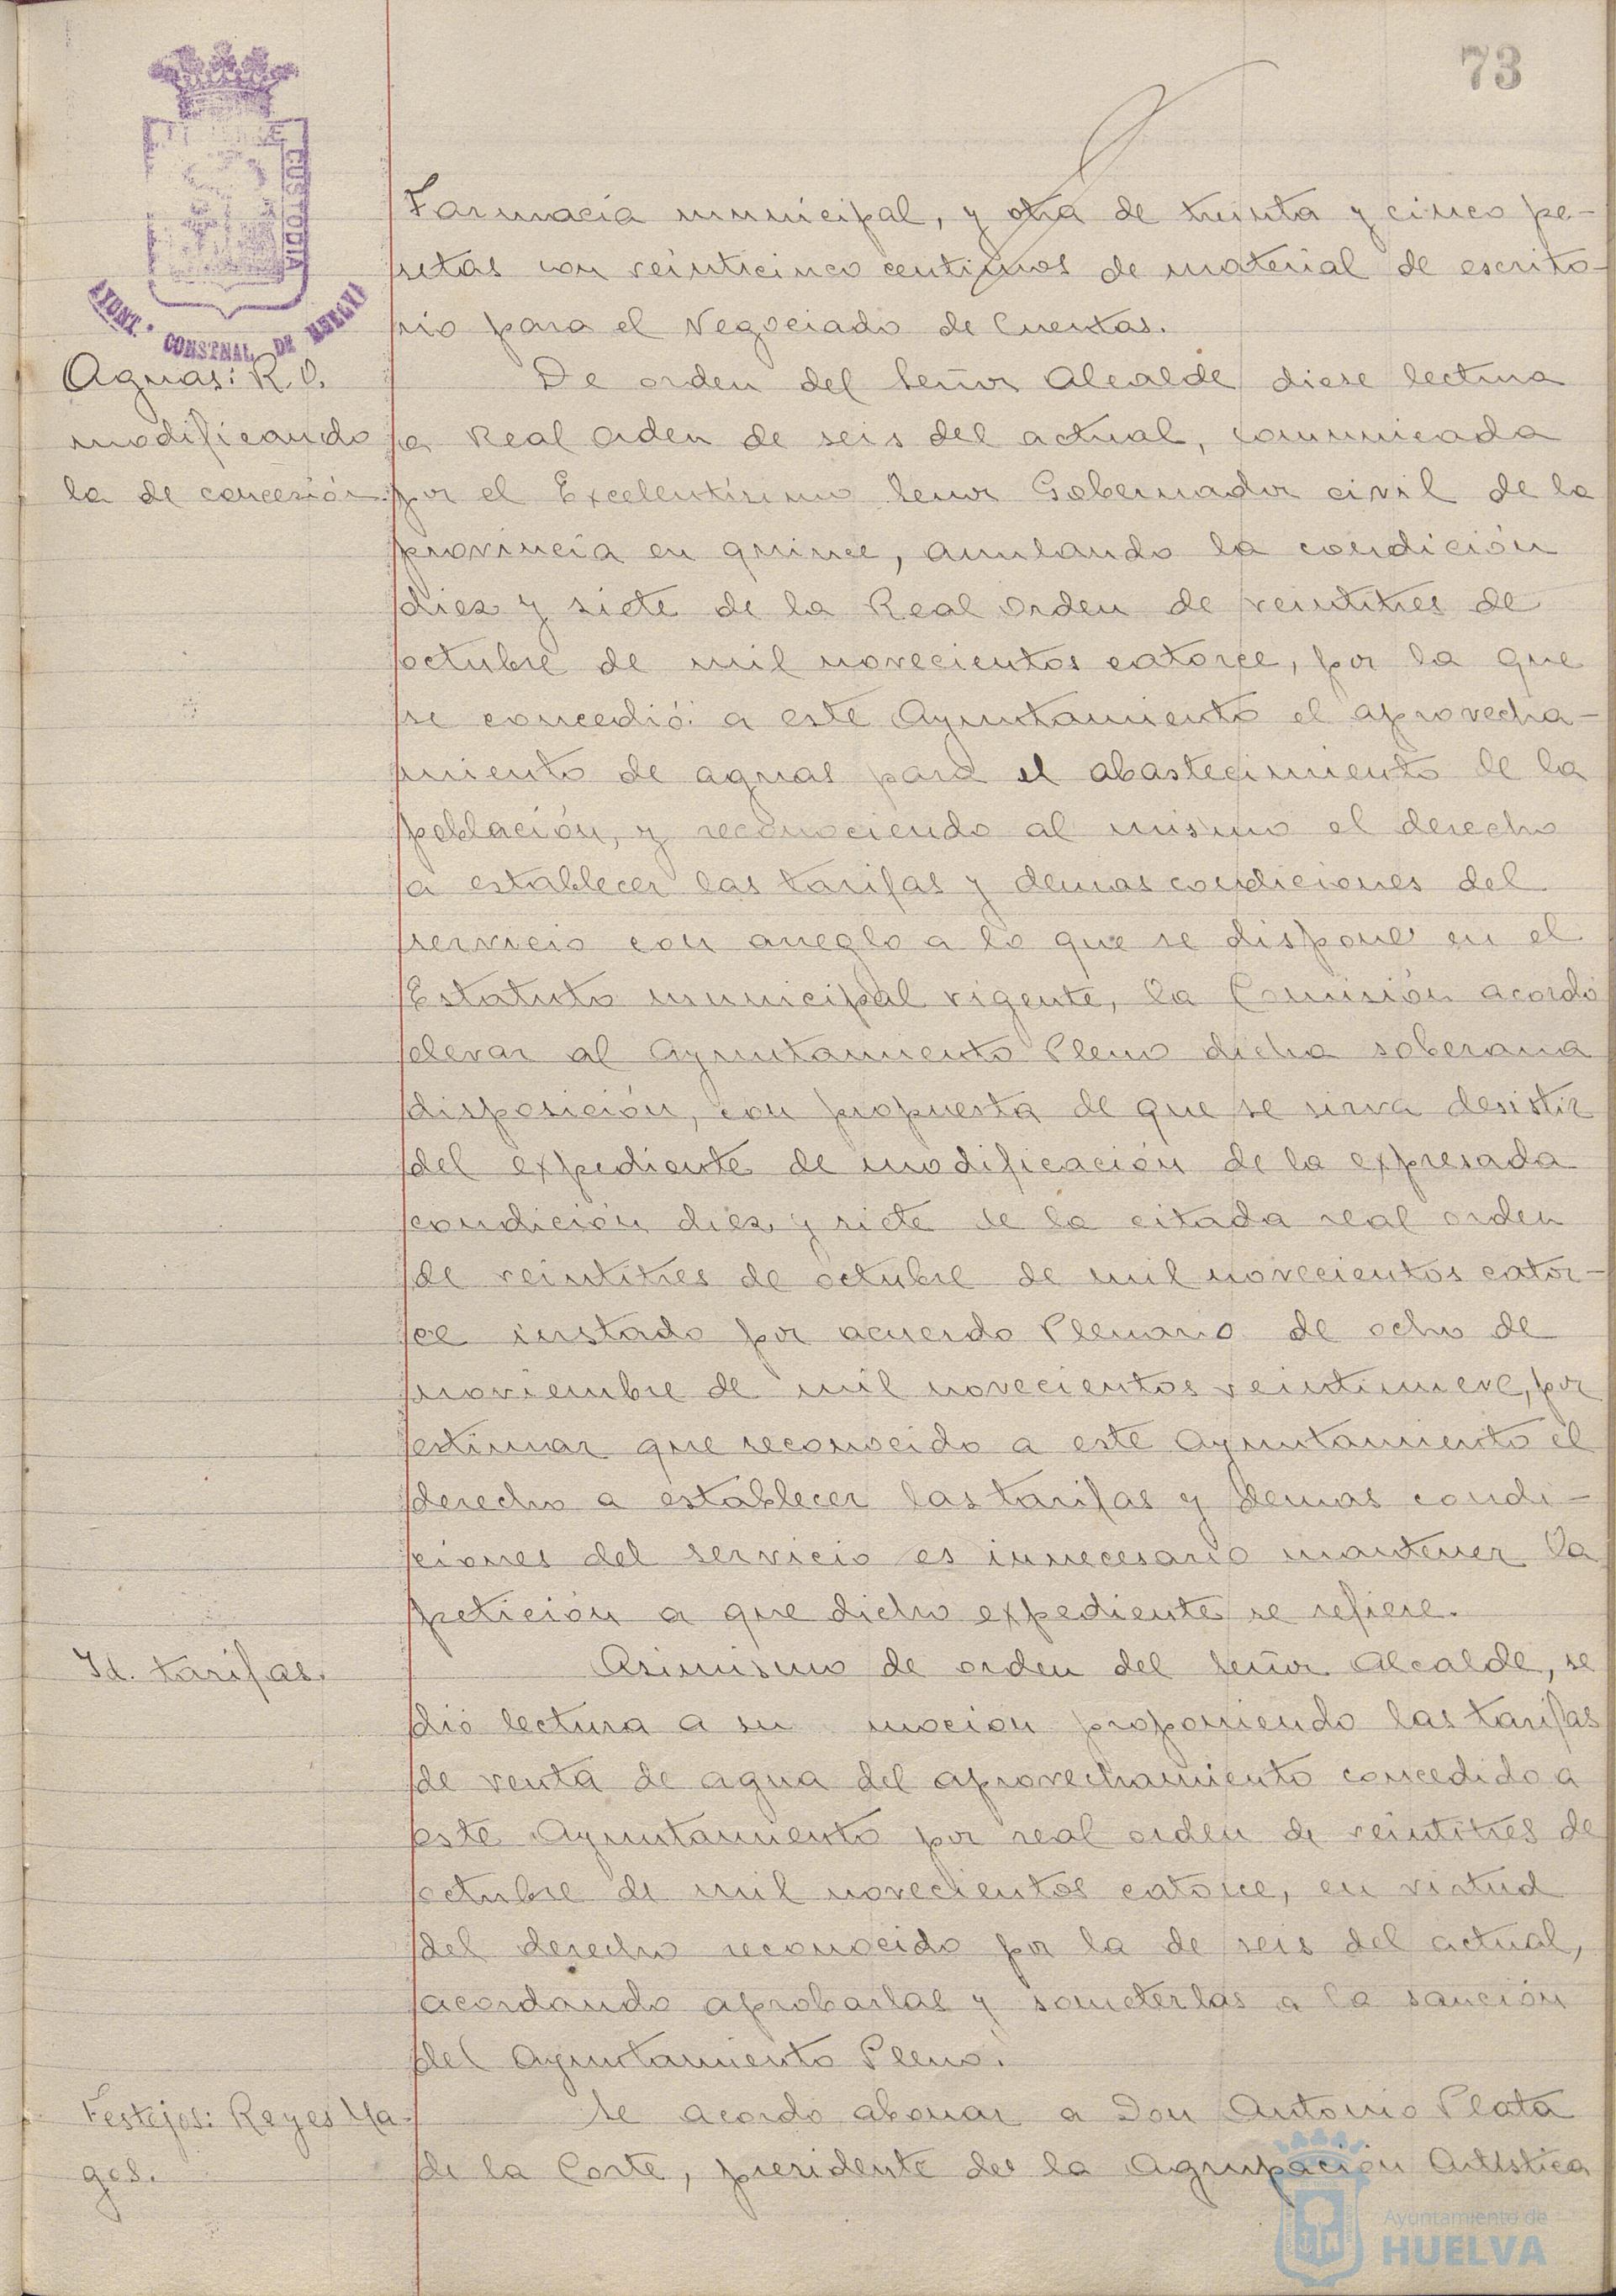 73
CUSTODIA
AYUNT. CONSTNAL DE HUELVA
Farmacia municipal, y otra de treinta y cinco pe-
setas con veinticinco centimos de material de escrito-
rio para el Negociado de Cuentas.
Aguas: R. O.
modificando
la de concesión.
De orden del Señor Alcalde diose lectura
a Real orden de seis del actual, comunicada
por el Excelentísimo Señor Gobernador civil de la
provincia en quince, anulando la condición
diez y siete de la Real orden de veintitres de
octubre de mil novecientos catorce, por la que
se concedió a este Ayuntamiento el aprovecha-
miento de aguas para el abastecimiento de la
población, y reconociendo al mismo el derecho
a establecer las tarifas y demas condiciones del
servicio con arreglo a lo que se dispone en el
Estatuto municipal vigente, la Comisión acordó
elevar al Ayuntamiento Pleno dicha soberana
disposición, con propuesta de que se sirva desistir
del expediente de modificación de la expresada
condición diez y siete de la citada real orden
de veintitres de octubre de mil novecientos cator-
ce instado por acuerdo Plenario de ocho de
noviembre de mil novecientos veintinueve, por
estimar que reconocido a este Ayuntamiento el
derecho a establecer las tarifas y demas condi-
ciones del servicio es innecesario mantener la
petición a que dicho expediente se refiere.
Id. tarifas.
Asimismo de orden del Señor Alcalde, se
dió lectura a su moción proponiendo las tarifas
de venta de agua del aprovechamiento concedido a
este Ayuntamiento por real orden de veintitres de
octubre de mil novecientos catorce, en virtud
del derecho reconocido por la de seis del actual,
acordando aprobarlas y someterlas a la sanción
del Ayuntamiento Pleno.
Festejos: Reyes Ma-
gos.
Se acordo abonar a Don Antonio Plata
de la Corte, presidente de la Agrupación Artística
Ayuntamiento de
HUELVA